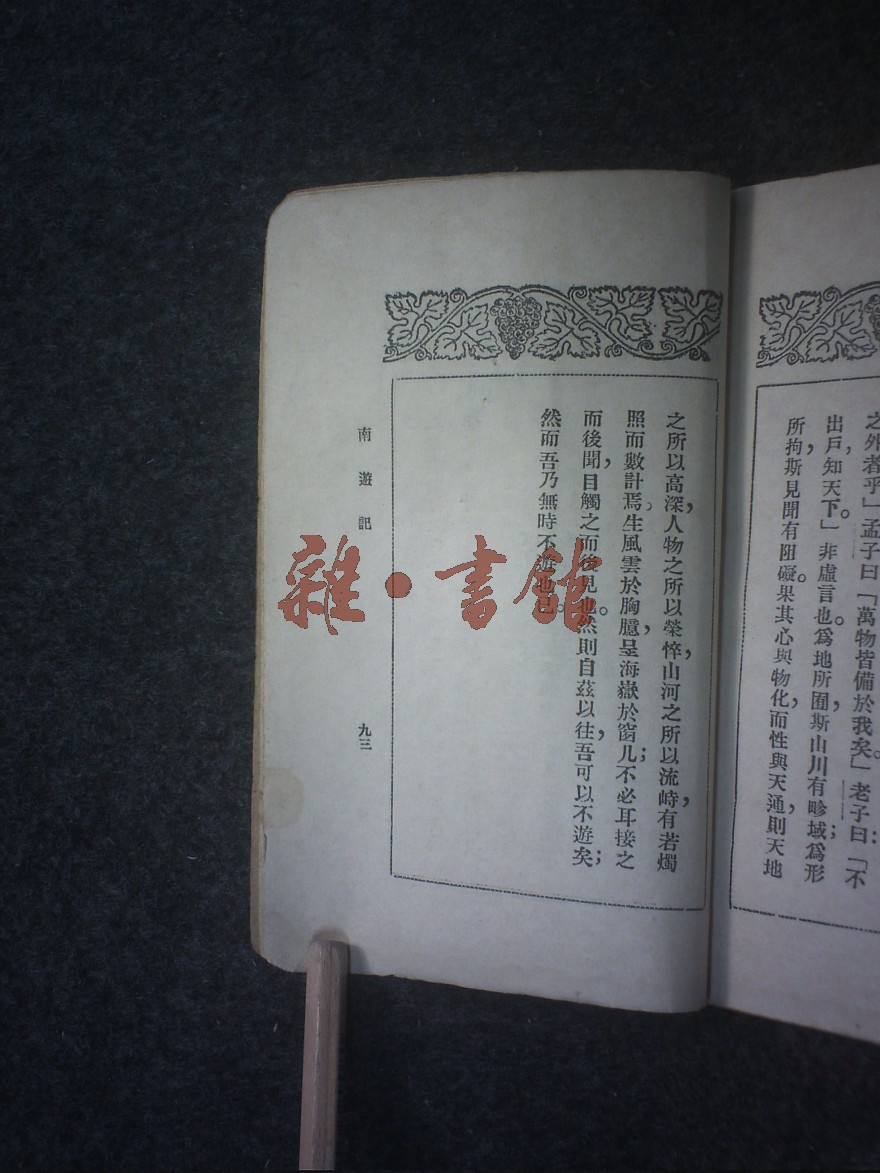 之外者乎」孟子曰「萬物皆備於我矣。」老子曰：「不
出戶，知天下。」非虛言也。爲地所囿，斯山川有畛域；爲形
所拘，斯見聞有阻礙。果其心與物化，而性與天通，則天地
之所以高深，人物之所以榮悴，山河之所以流峙，有若燭
照而數計焉。生風雲於胸臆，呈海嶽於窗几；不必耳接之
而後聞，目觸之而後見也。然則自茲以往，吾可以不遊矣；
然而吾乃無時不遊也已。
南遊記
九三
雜·書館